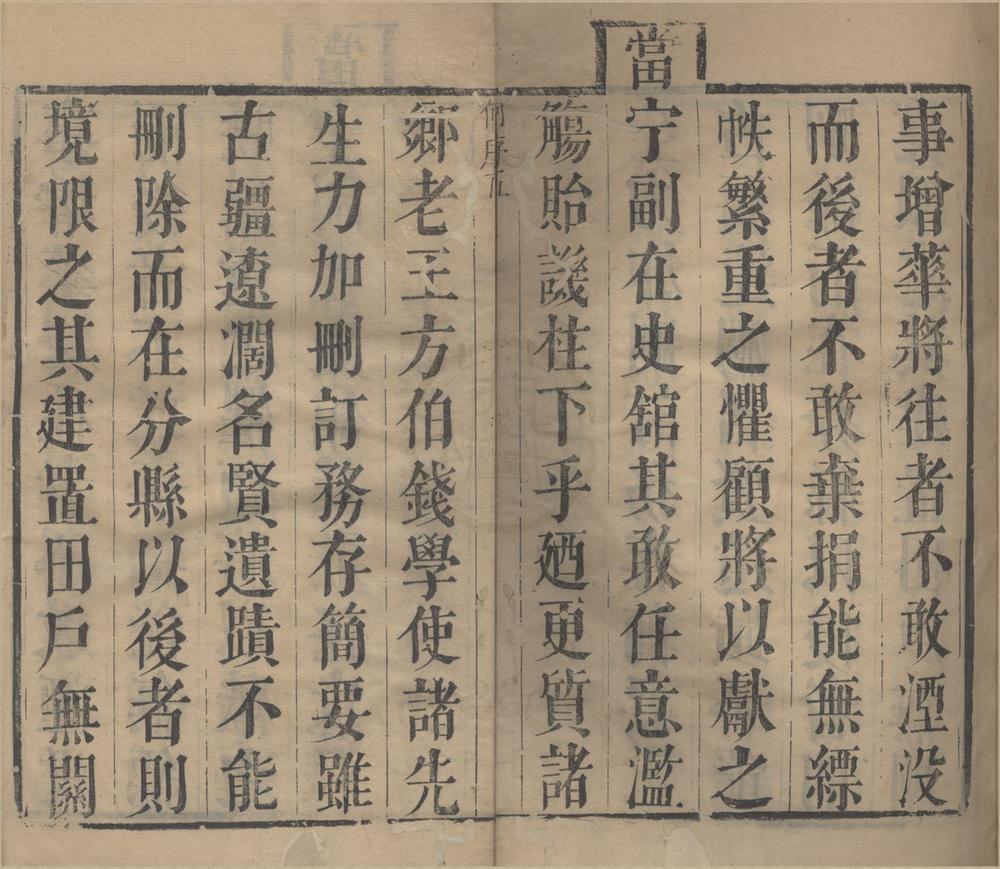 事增華將往者不敢湮没
而後者不敢棄捐能無縹
帙繁重之懼顧將以獻之
當宁副在史舘其敢任意濫
觴貽譏柱下乎廼更質諸
何序五
鄉老王方伯錢學使諸先
生力加刪訂務存簡要雖
古疆遼濶名賢遺蹟不能
刪除而在分縣以後者則
境限之其建置田戶無關